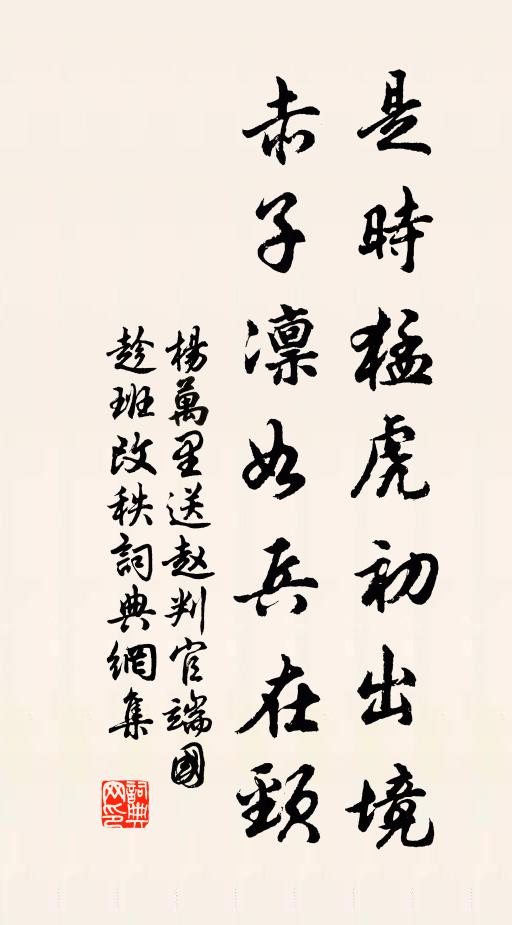 是時猛虎初出境
赤子凛如兵在頸
楊萬里送赵判官端國
趁班改秩詞典網集
詞典网印